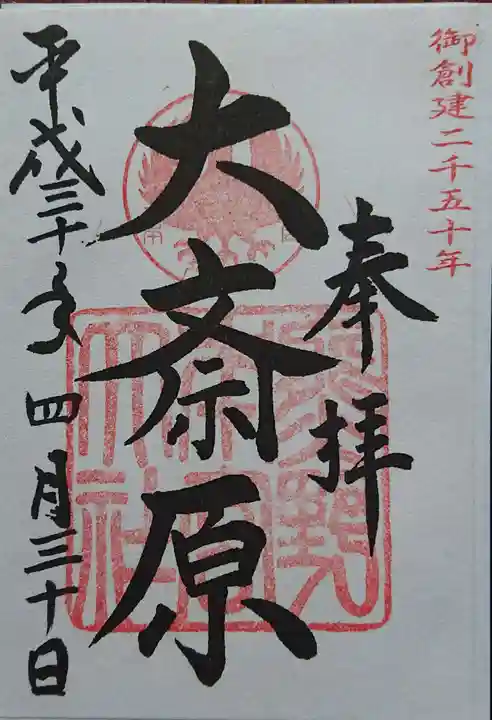 御創建二千五十年
奉拝
大斎原
熊野本宮大社
平成三十年四月三十日